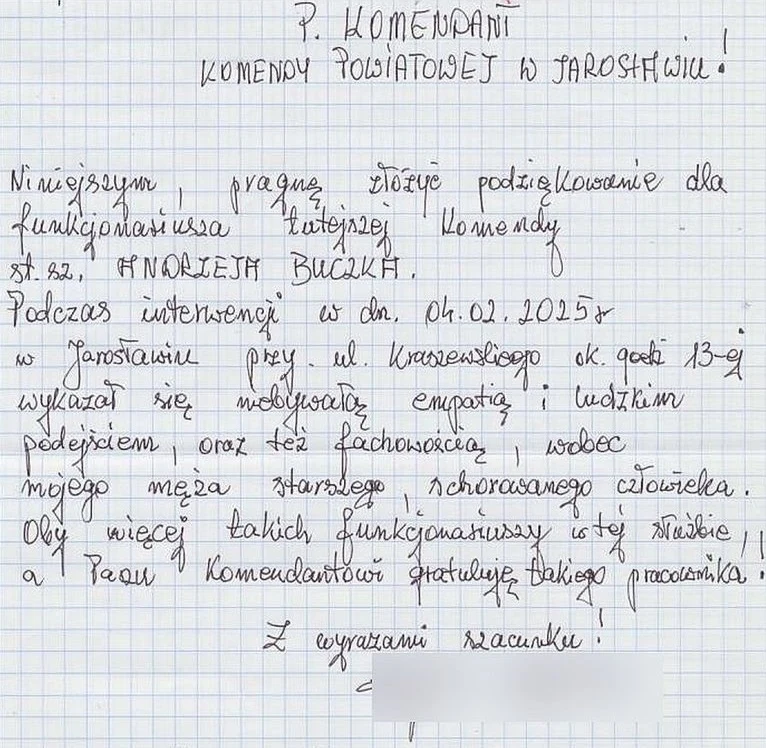 P. KOMENDANT
KOMENDY POWIATOWEJ W JAROSŁAWIU!
Niniejszym, pragnę złożyć podziękowanie dla
funkcjonariusza tutejszej Komendy
st. sz. ANDRZEJA BUCZKA.
Podczas interwencji w dn. 04.02.2025r
w Jarosławiu przy. ul. Kraszewskiego ok. godz 13-ej
wykazał się niebywałą empatią i ludzkim
podejściem, oraz też fachowością, wobec
mojego męża starszego, schorowanego człowieka.
Oby więcej takich funkcjonariuszy w tej służbie,
a Panu Komendantowi gratuluję takiego pracownika!!
Z wyrazami szacunku!